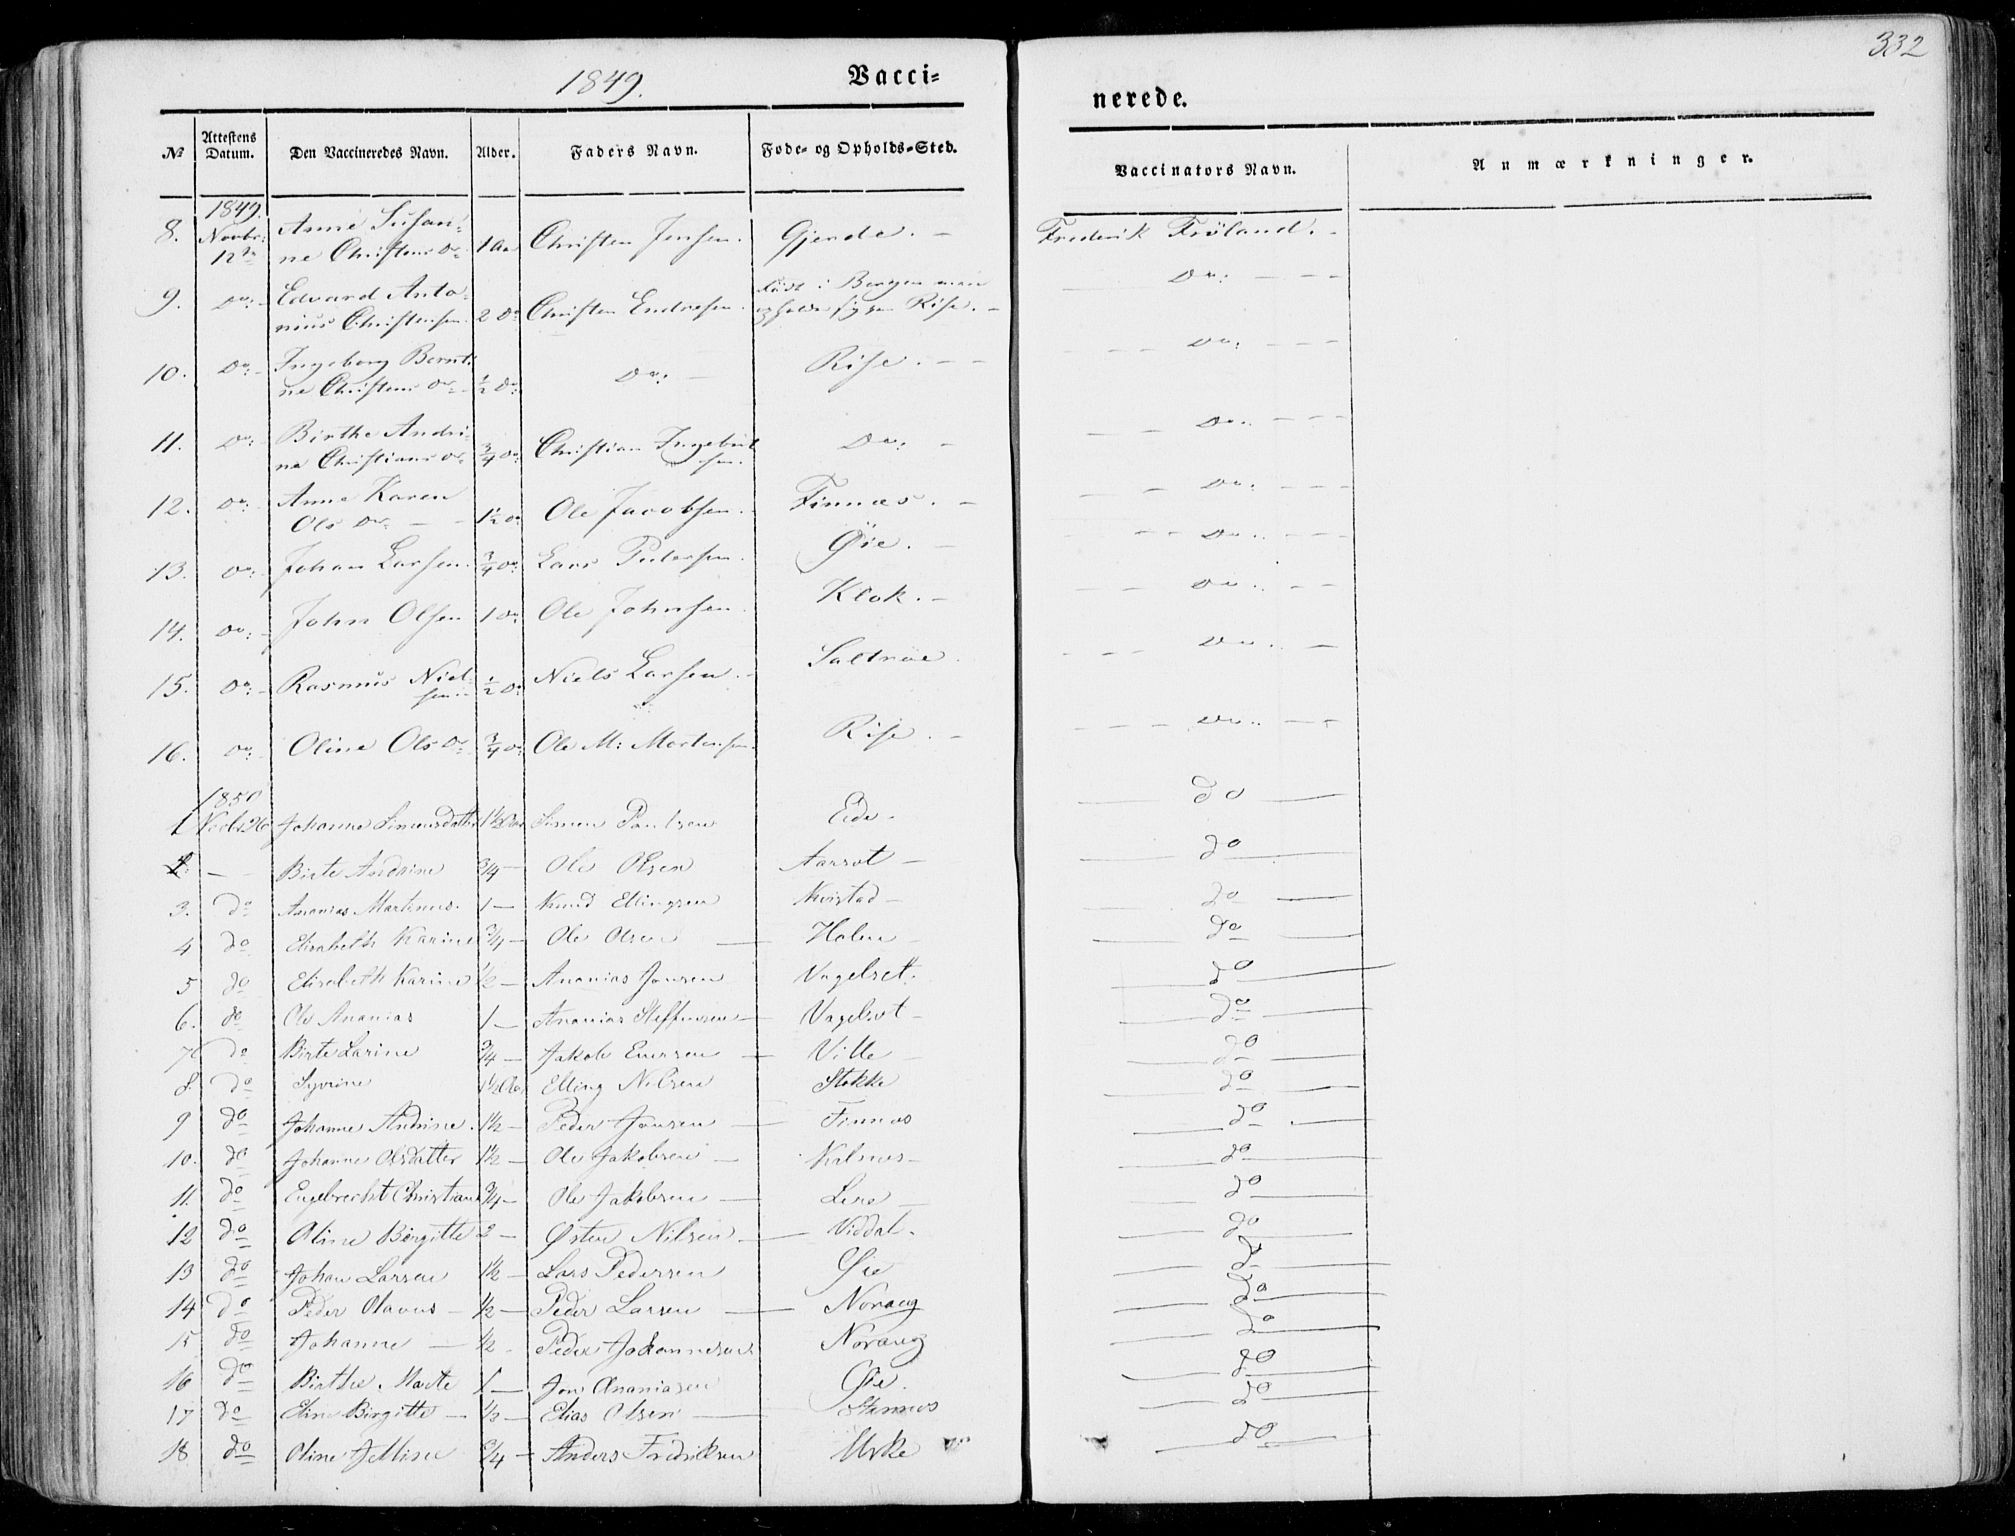 332
1849.
Vacci=
nerede.
№ Attestens Datum. Den Vaccineredes Navn. Alder. Faders Navn. Føde- og Opholds-Sted. Vaccinators Navn. Anmærkninger.
1849.
8. Novbr: 12te Anne Susan-
ne Christens Dr 1 Aar Christen Jensen. Gjerde. - Frederik Frøland. -
9. Do: - Edvard Anto-
nius Christensen. 2 Do Christen Endresen. Født i Bergen men
opholder sig paa Rise. - Do:
10. Do: - Ingeborg Bernti-
ne Christens Dr 1/2 Do: Do: - Rise. - - Do:
11. Do: Birthe Andri-
ne Christians Dr 3/4 Do: Christian Ingebrit
sen. Do: - Do:
12. Do: Anne Karen
Ols Dr - - 1 1/2 Do Ole Jacobsen. Finnæs. - Do:
13. Do: Johan Larsen. 3/4 Do: Lars Pedersen. Øie. - Do:
14. Do: - John Olsen 1 Do: Ole Johnsen. Klok. - Do:
15. Do: - Rasmus Niel-
sen. 1/2 Do: Niels Larsen. - Sætrøe. Do:
16. Do: Oline Ols Dr 3/4 Do: Ole M: Mortensen. Rise. - Do:
1850
1 Novbr 26 Johanne Simensdatter 1 1/2 Aar Simen Paulsen Eide. do
2. - - Birte Andrine 3/4 - Ole Olsen Aarset - do
3. do Ananias Martinus. 1 - Knud Ellingsen Kvistad - do
4 do Elisabeth Karine 3/4 - Ole Olsen - Holen - do
5 do Elisabeth Karine 1/2 - Ananias Jonsen Vagelset. do
6. do Ole Ananias 1 - Ananias Steffensen - Vagelset - do
7 do Birte Larine 3/4 - Jakob Eversen - Ville - do
8. do Syvrine 1 1/2 Aar Elling Nilsen Stokke do
9 do Johanne Andrine. 1 1/2 - Peder Jonsen - Finnes do
10. do Johanne Olsdatter 1 1/2 - Ole Jakobsen - Kalnes - do
11. do Engebrecht Christian 3/4 - Ole Jakobsen - Lere - do
12 do Oline Birgitte 2 - Østen Nilsen - Viddal. do
13 do Johan Larsen 1 1/2 - Lars Pedersen Øie do
14 do Peder Olavus - 1/2 - Peder Larsen - Norang do
15. do Johanne - 1/2 - Peder Johannesen Norang do
16 do Birthe Marte 1 - Jon Ananiasen Øie. do
17 do Eline Birgitte - 1/2 - Elias Olsen - Stennes do
18 do Oline Jettine 3/4 - Anders Fredriksen Urke do